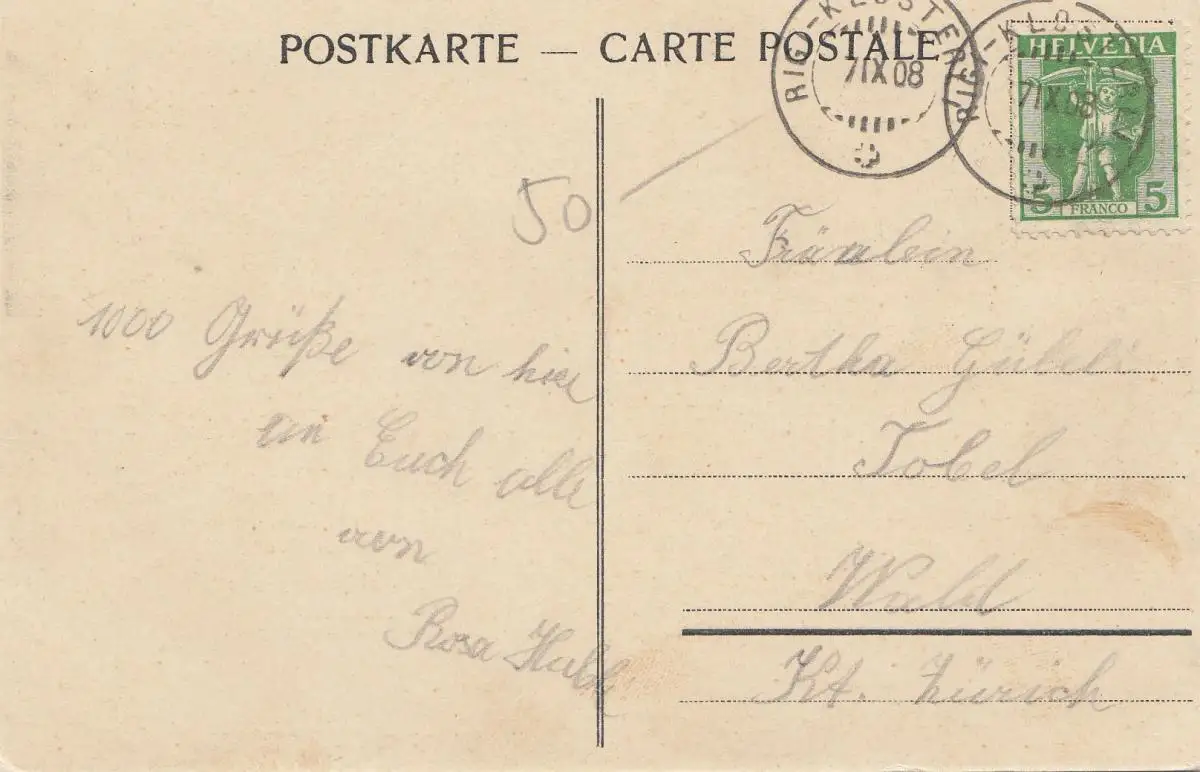 POSTKARTE — CARTE POSTALE
RIGI-KLOSTERLI
7 IX 08
RIGI-KLOSTERLI
7 IX 08
HELVETIA
5 FRANCO 5
50
1000 Grüße von hier
an Euch alle
von
Rosa
Fräulein
Bertha
Tobel
Wald
Kt. Zürich